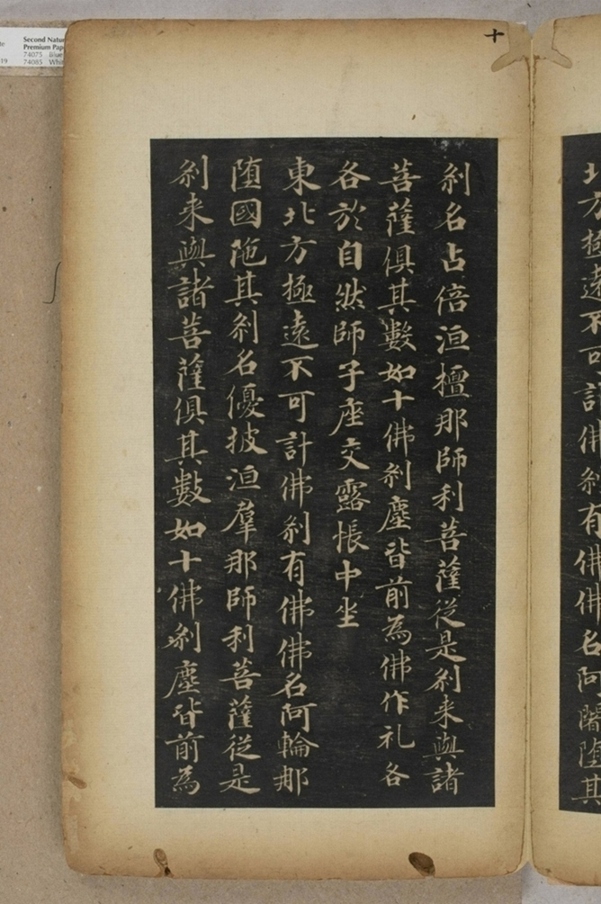 刹名占倍洹檀那師利菩薩従是刹来與諸
菩薩俱其數如十佛刹塵皆前為佛作礼各
各於自然師子座交露帳中坐
東北方極遠不可計佛刹有佛佛名阿輪那
堕國陁其刹名優披洹羣那師利菩薩従是
刹来與諸菩薩俱其數如十佛刹塵皆前為
十
北方極遠不可計佛刹有佛佛名阿闍堕其
Second Natu
Premium Pap
74075 Blue
74085 Whit
19